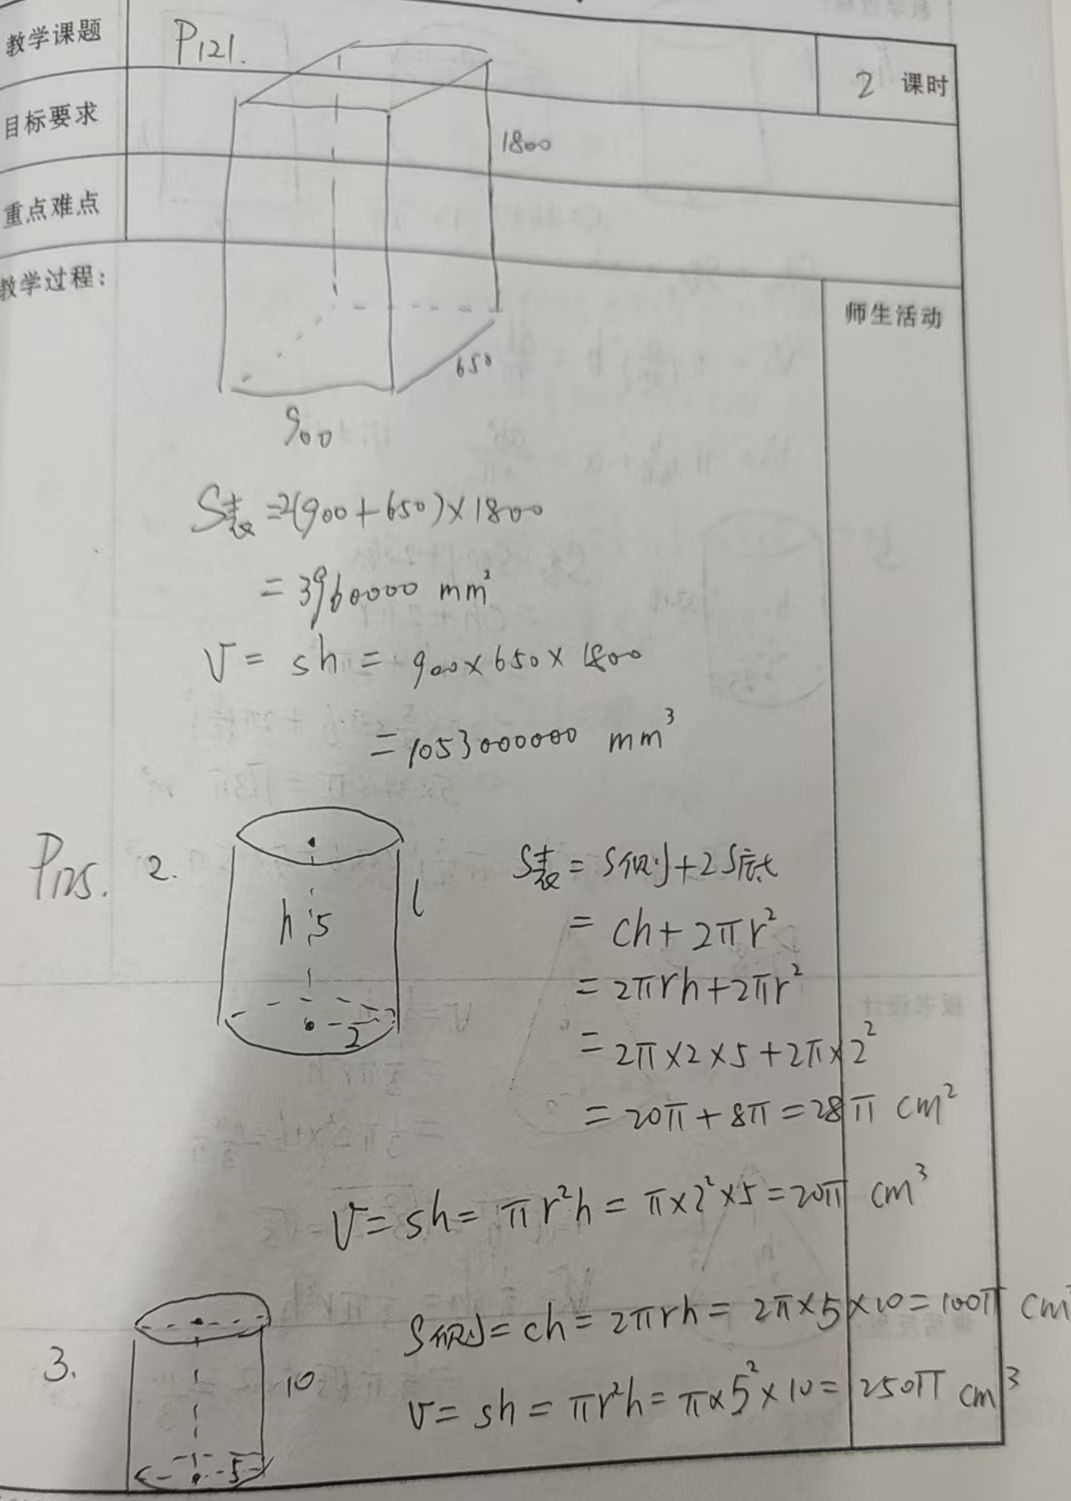 教学课题
P121.
2 课时
目标要求
1800
重点难点
教学过程:
师生活动
650
900
S表=2(900+650)×1800
=3960000 mm²
V= sh = 900×650×1800
=1053000000 mm³
P125. 2.
h 5
l
2
S表=S侧+2S底
= ch+2πr²
=2πrh+2πr²
=2π×2×5+2π×2²
=20π+8π=28π cm²
V=sh=πr²h=π×2²×5=20π cm³
3.
10
5
S侧=ch=2πrh=2π×5×10=100π cm²
V=sh=πr²h=π×5²×10=250π cm³